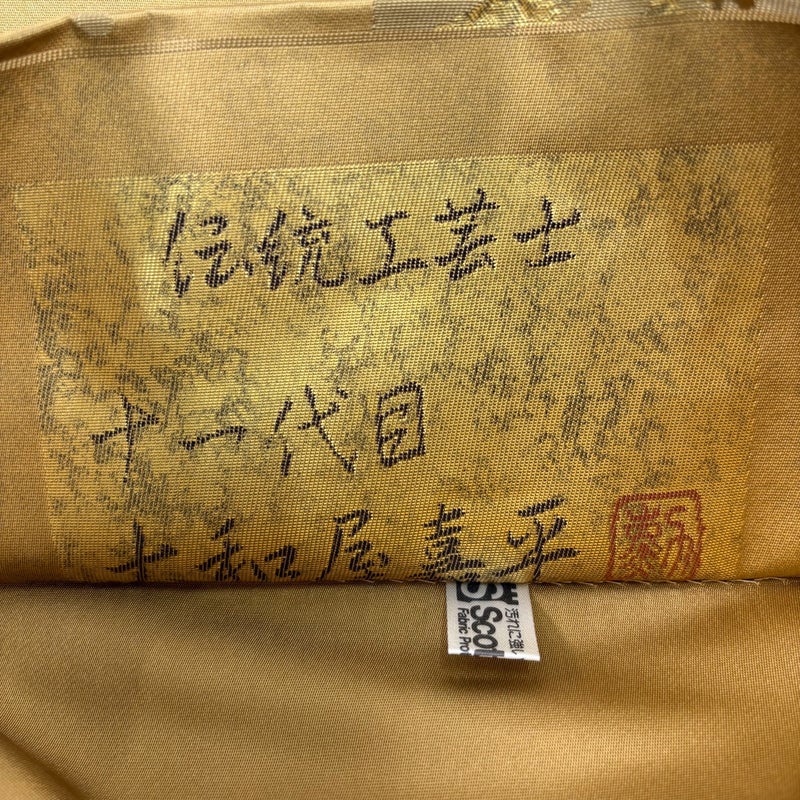 伝統工芸士
十一代目
十和屋喜平
Scot
Fabric Pro
汚れに強い